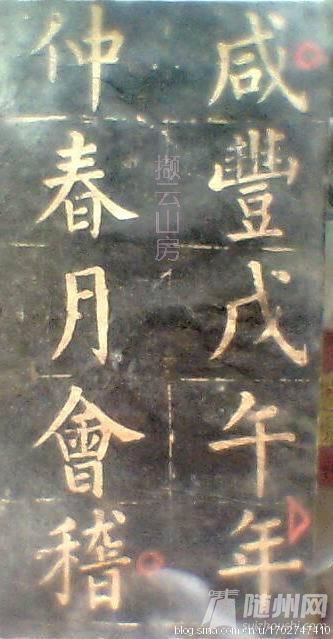 咸豐戊午年
仲春月會稽
撷云山房
随州网
suizhoushi.com
blog.sina.com.cn/u/1702747410